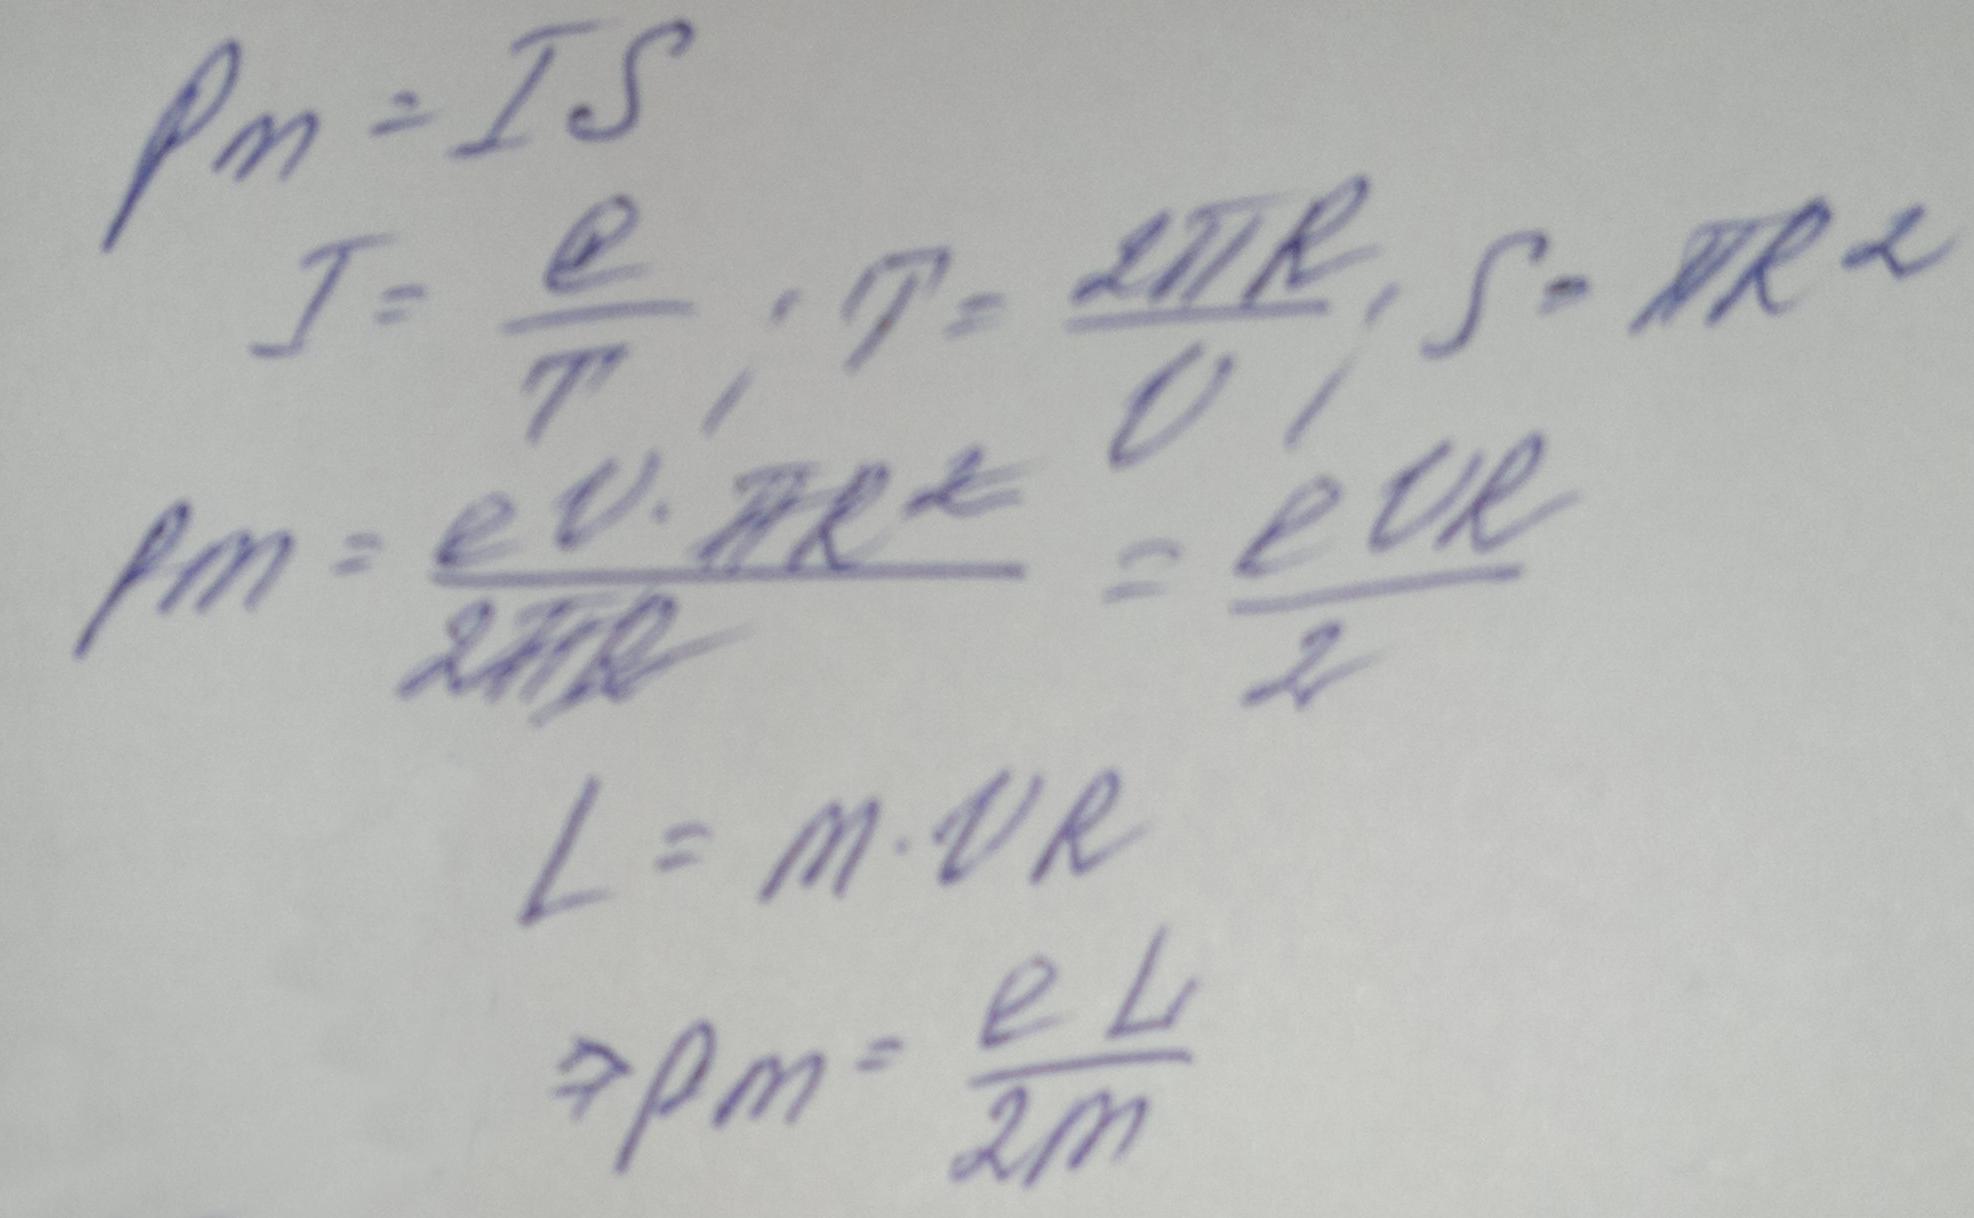 pm = IS
I = e/T ; T = 2πR/υ ; S = πR²
pm = eυ·πR²/2πR = eυR/2
L = m·υR
⇒ pm = eL/2m